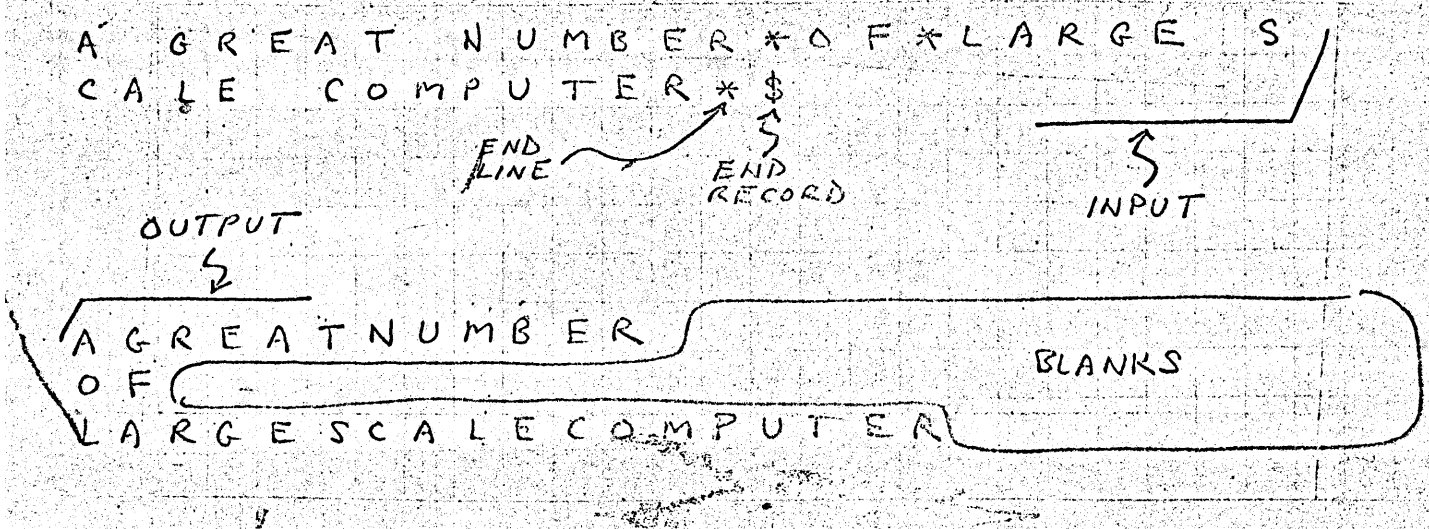 A GREAT NUMBER*OF*LARGE S
CALE COMPUTER*$
END
LINE
END
RECORD
INPUT
OUTPUT
AGREATNUMBER
OF
BLANKS
LARGESCALECOMPUTER